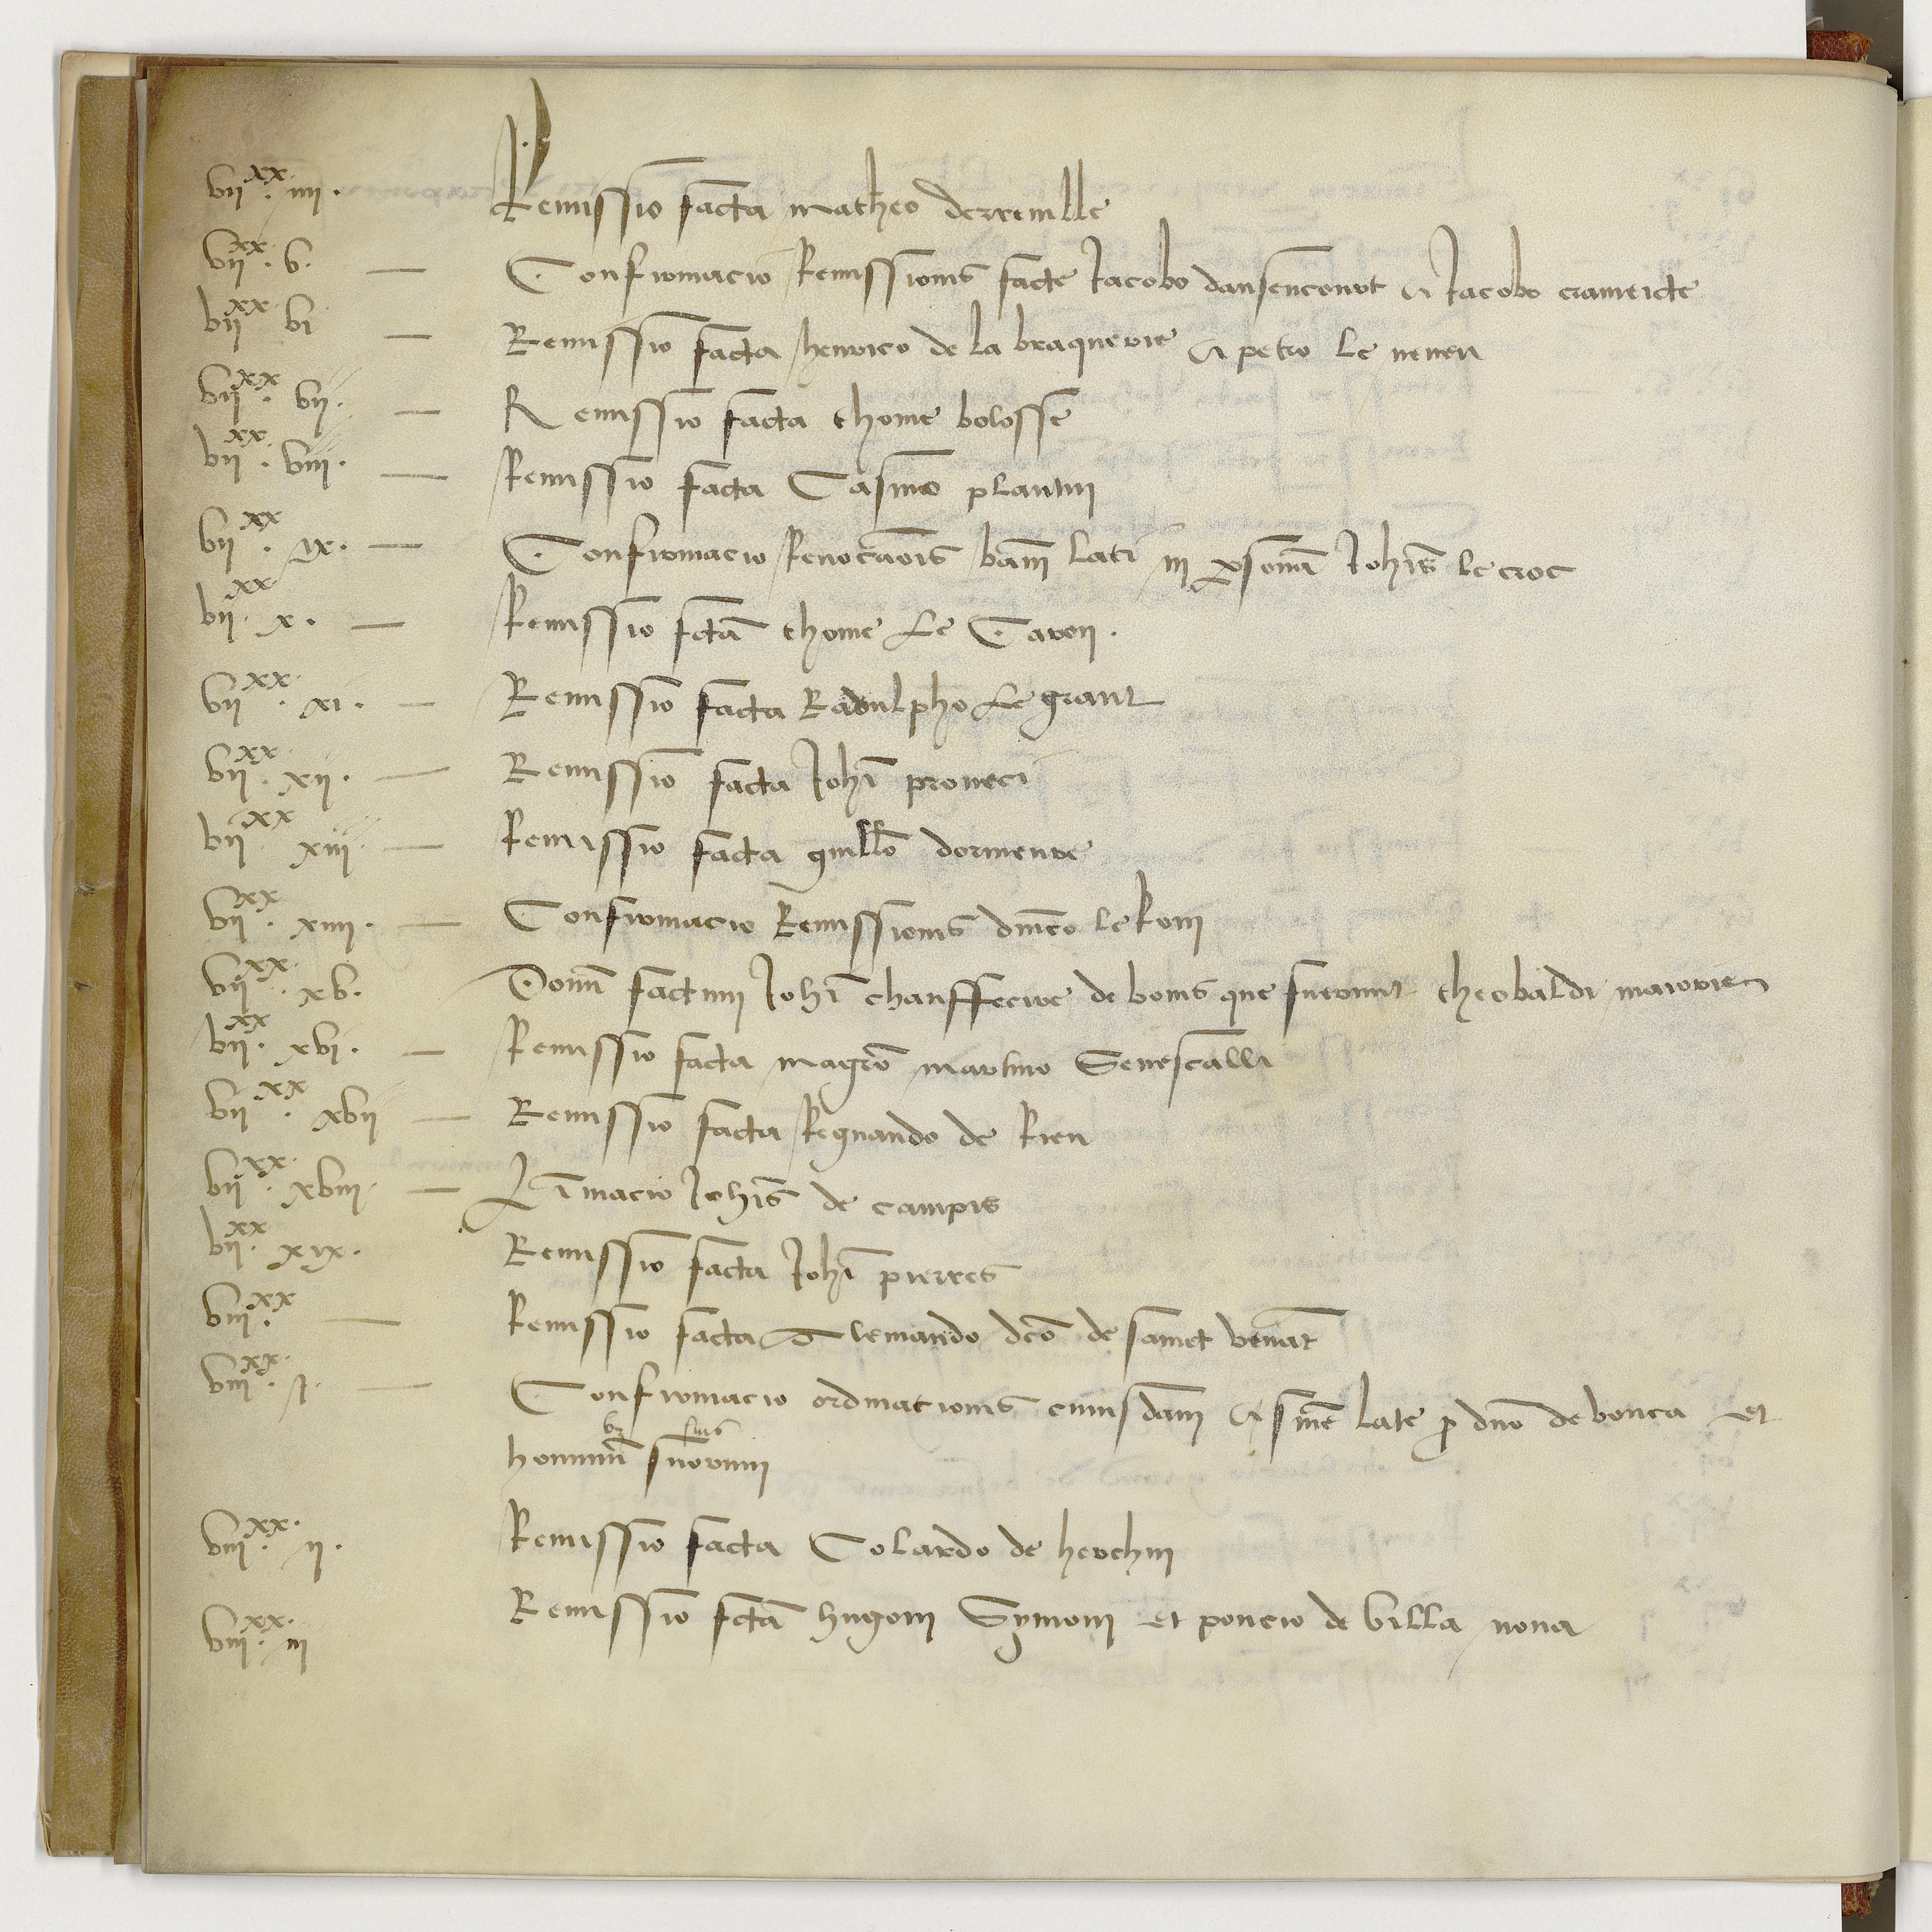 vii xx. iiii. Remissio facta matheo derremlle
vii xx. v. — Confirmacio Remissionis facte Jacobo dansencourt & Jacobo crameide
vii xx vi — Remissio facta henrico de la braquerie & petro le neveu
vii xx. vii. — Remissio facta thome bolosse
vii xx. viii. — Remissio facta Casino plantin
vii xx. ix. — Confirmacio Revocacois bani lati in psona Johis le croc
vii xx x. — Remissio fcta thome le Caron.
vii xx. xi. — Remissio facta Radulpho le grant
vii xx. xii. — Remissio facta Johi
vii xx xiii — Remissio facta guillo dormente
vii xx. xiiii. — Confirmacio Remissionis dnico le Roy
vii xx. xv. Donu factum Johi chauffecire de bonis que fuerunt theobaldi
vii xx. xvi. — Remissio facta magro martino Senescalli
vii xx. xvii — Remissio facta Regnaudo de Rieu
vii xx. xviii. — Litimacio Johis de campis
vii xx. xix. Remissio facta Johi pierres
viii xx. — Remissio facta dco de sainct venat
viii xx. i. — Confirmacio ordinationis cuiusdam & snie late p dno de et
hominu suorum
bz suis
viii xx. ii. Remissio facta Colardo de herchin
viii xx. iii Remissio fcta hugoni Symoni et poncio de villa nova